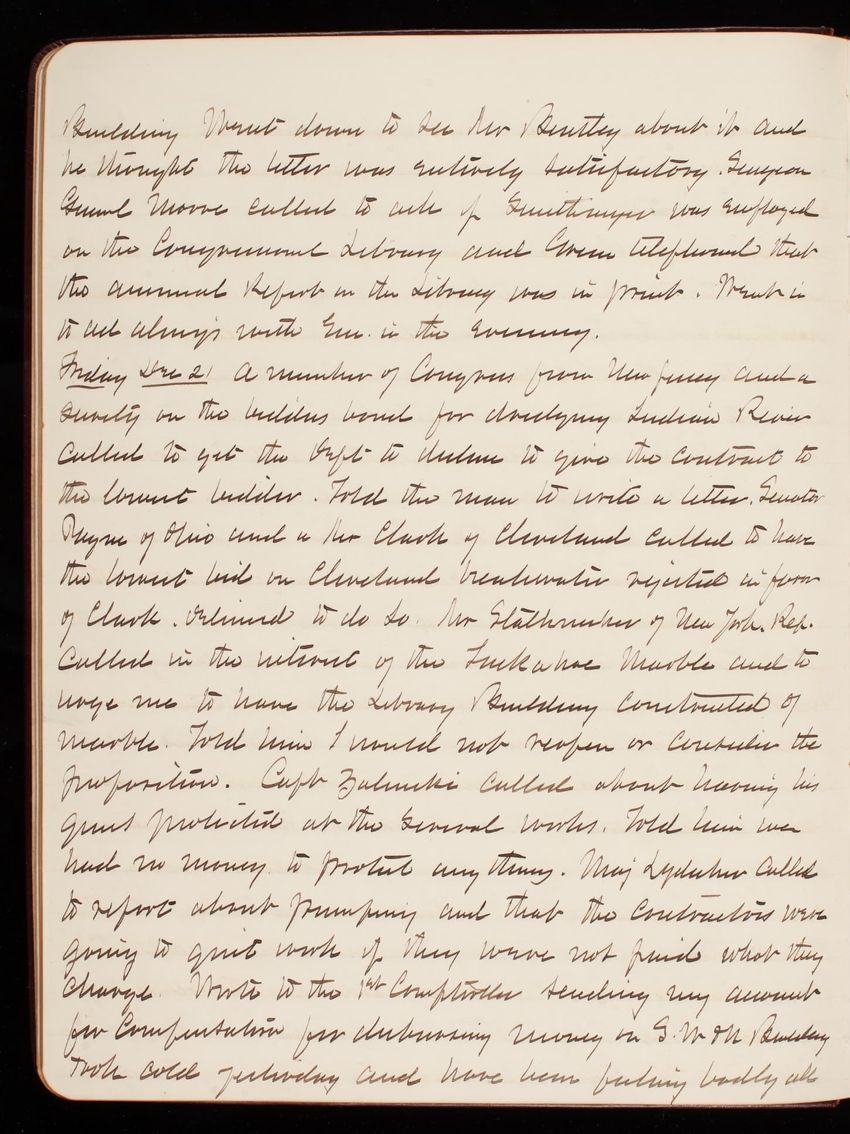 Building Went down to see Mr Bentley about it and
he thought the letter was entirely satisfactory. Surgeon
General Moore called to ask if Smithmeyer was employed
on the Congressional Library and Green telephoned that
the annual Report on the Library was in print. Went in
to ad always with Em. in the evening.
Friday Dec 21 A member of Congress from New Jersey and a
surety on the bidders bond for dredging Indian River
called to get the Dept to decline to give the contract to
the lowest bidder. Told the man to write a letter. Senator
Payne of Ohio and a Mr Clark of Cleveland called to have
the lowest bid on Cleveland breakwater rejected in favor
of Clark. Declined to do so. Mr Stahlnecker of New York. Rep.
called in the interest of the Tuckahoe Marble and to
urge me to have the Library Building constructed of
marble. Told him I would not reopen or consider the
proposition. Capt Zalinski called about having his
guns protected at the several works. Told him we
had no money to protect anything. Maj Lydecker called
to report about pumping and that the contractors were
going to quit work if they were not paid what they
charge. Wrote to the 1st Comptroller sending my account
for Compensation for disbursing money on S. W & N Building
Took cold yesterday and have been feeling badly all